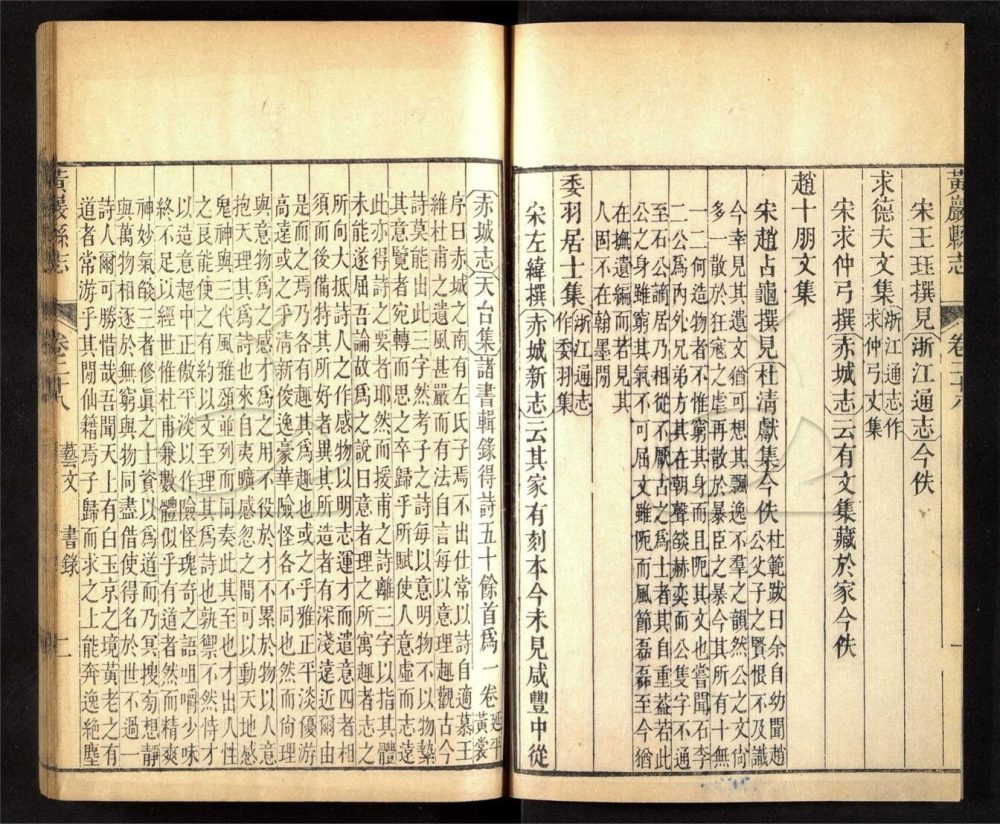 黃巖縣志 卷二十八 一
宋王珏撰見浙江通志今佚
求德夫文集浙江通志作求仲弓文集
宋求仲弓撰赤城志云有文集藏於家今佚
趙十朋文集
宋趙占龜撰見杜清獻集今佚杜範跋曰余自幼聞趙
公父子之賢恨不及識
今幸見其遺文猶可想其飄逸不羣之韻然公之文尙
多一散於狂寇之虐再散於暴臣之暴今其所有十無
一二何造物者不惟窮其身而且阨其文也嘗聞石李
二公爲內外兄弟方其在朝聲燄赫奕而公隻字不通
至石公謫居乃相從不厭古之爲士者其自重葢若此
公之身雖窮其氣不可屈文雖阨而風節磊磊至今猶
在撫遺編而若見其
人固不在翰墨閒
委羽居士集浙江通志作委羽集
宋左緯撰赤城新志云其家有刻本今未見咸豐中從
赤城志天台集諸書輯錄得詩五十餘首爲一卷延平
黃裳
序曰赤城之南有左氏子焉不出仕常以詩自適慕王
維杜甫之遺風甚嚴而有法自言每以意理趣觀古今
詩莫能出此三字然考子之詩每以意明物不以物縶
其意覽者宛轉而思之卒歸乎所賦使人意虛而志遠
此亦得詩之要者耶然而援甫之詩離三字以指其體
未能遂屈吾論故爲之說曰意者理之所寓趣者志之
所向大抵詩人之作感物以明志運才而遣意四者相
須而後備特其所好者異其所造者有深淺遠近爾由
是而之焉乃各有趣也其爲趣也或之乎雅正平淡優游
高達或之乎清新俊逸豪華險怪各不同也然而尙理
與意物爲之感才爲之用不役於才不累於物以人意
抱天理其爲詩也來自夷曠感忽之間可以動天地感
鬼神與三代風雅頌並列而同奏此其至也才出人性
之良能使之有約以文至理其爲詩也孰禦不然恃才
以造意超中正傲平淡以作險怪瑰奇之語咀嚼少味
終不足以經世惟杜甫兼數體似乎有道者然而精爽
神妙氣燄三者修眞之士資以爲道而乃冥搜茘想靜
與萬物相逐於無窮與物同盡借使得名於世不過一
詩人爾可勝惜哉吾聞天上有白玉京之境黃老之有
道者常游乎其閒仙籍焉子歸而求之上能奔逸絕塵
黃巖縣志 卷二十八 藝文 書錄 二